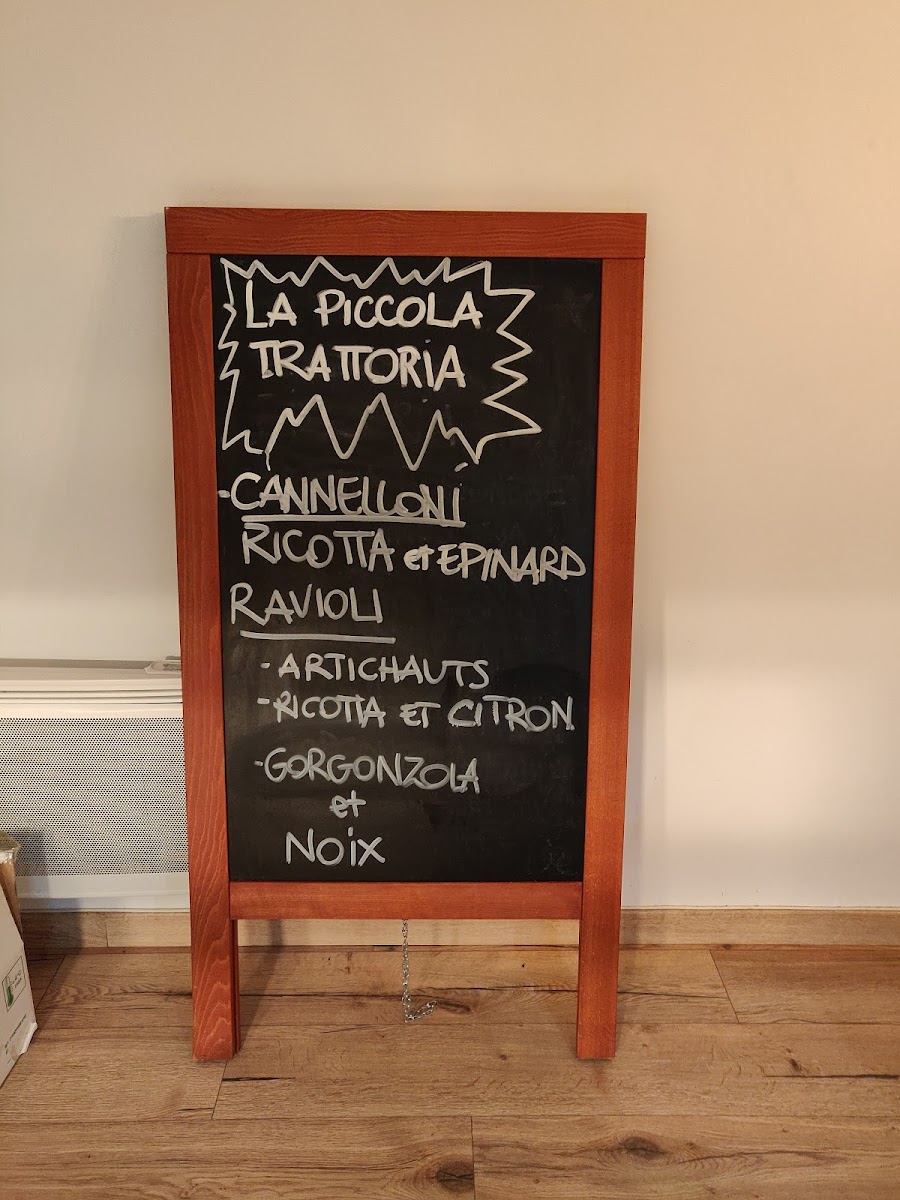 LA PICCOLA
TRATTORIA
-CANNELLONI
RICOTTA et EPINARD
RAVIOLI
- ARTICHAUTS
- RICOTTA ET CITRON
- GORGONZOLA
et
NOIX